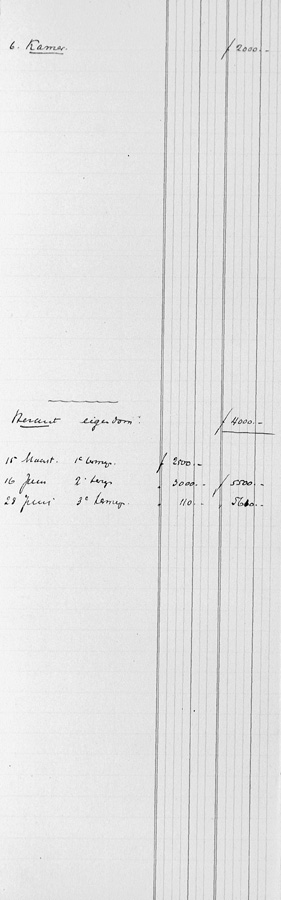 6. Kamer. ƒ 2000.-
eigendom ƒ 4000.-
15 Maart. 1e ƒ 2500.-
16 Juni 2e 3000.- ƒ 5500.-
28 Juni 3e 110.- 5610.-